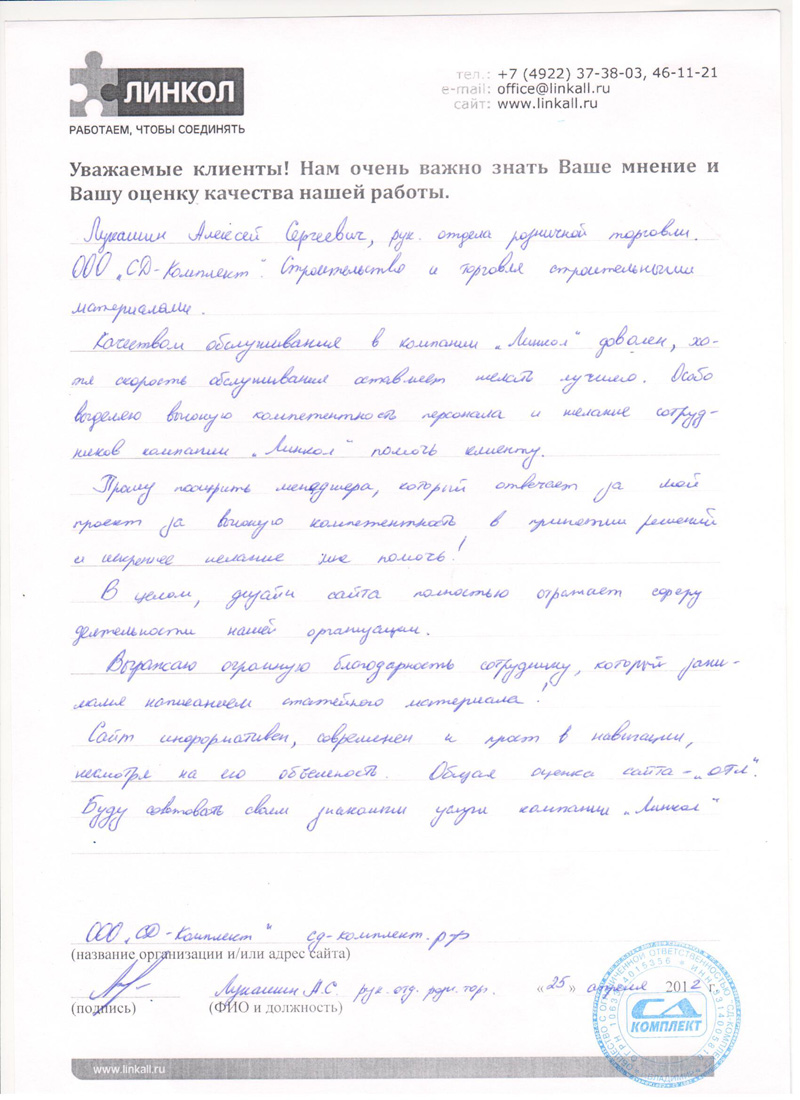 ЛИНКОЛ
РАБОТАЕМ, ЧТОБЫ СОЕДИНЯТЬ
тел.: +7 (4922) 37-38-03, 46-11-21
e-mail: office@linkall.ru
сайт: www.linkall.ru
Уважаемые клиенты! Нам очень важно знать Ваше мнение и
Вашу оценку качества нашей работы.
Лукашин Алексей Сергеевич, рук. отдела розничной торговли.
ООО „СД-Комплект“. Строительство и торговля строительными
материалами.
Качеством обслуживания в компании „Линкол“ доволен, хо-
тя скорость обслуживания оставляет желать лучшего. Особо
выделяю высокую компетентность персонала и желание сотруд-
ников компании „Линкол“ помочь клиенту.
Прошу поощрить менеджера, который отвечает за мой
проект за высокую компетентность в принятии решений
и искреннее желание мне помочь!
В целом, дизайн сайта полностью отражает сферу
деятельности нашей организации.
Выражаю огромную благодарность сотруднику, который зани-
мался написанием статейного материала!
Сайт информативен, современен и прост в навигации,
несмотря на его объемность. Общая оценка сайта - „отл“.
Буду советовать своим знакомым услуги компании „Линкол“
ООО „СД-Комплект“ сд-комплект.рф
(название организации и/или адрес сайта)
Лукашин А.С. рук. отд. розн. тор. «25» апреля 2012 г.
(подпись) (ФИО и должность)
СД
КОМПЛЕКТ
www.linkall.ru